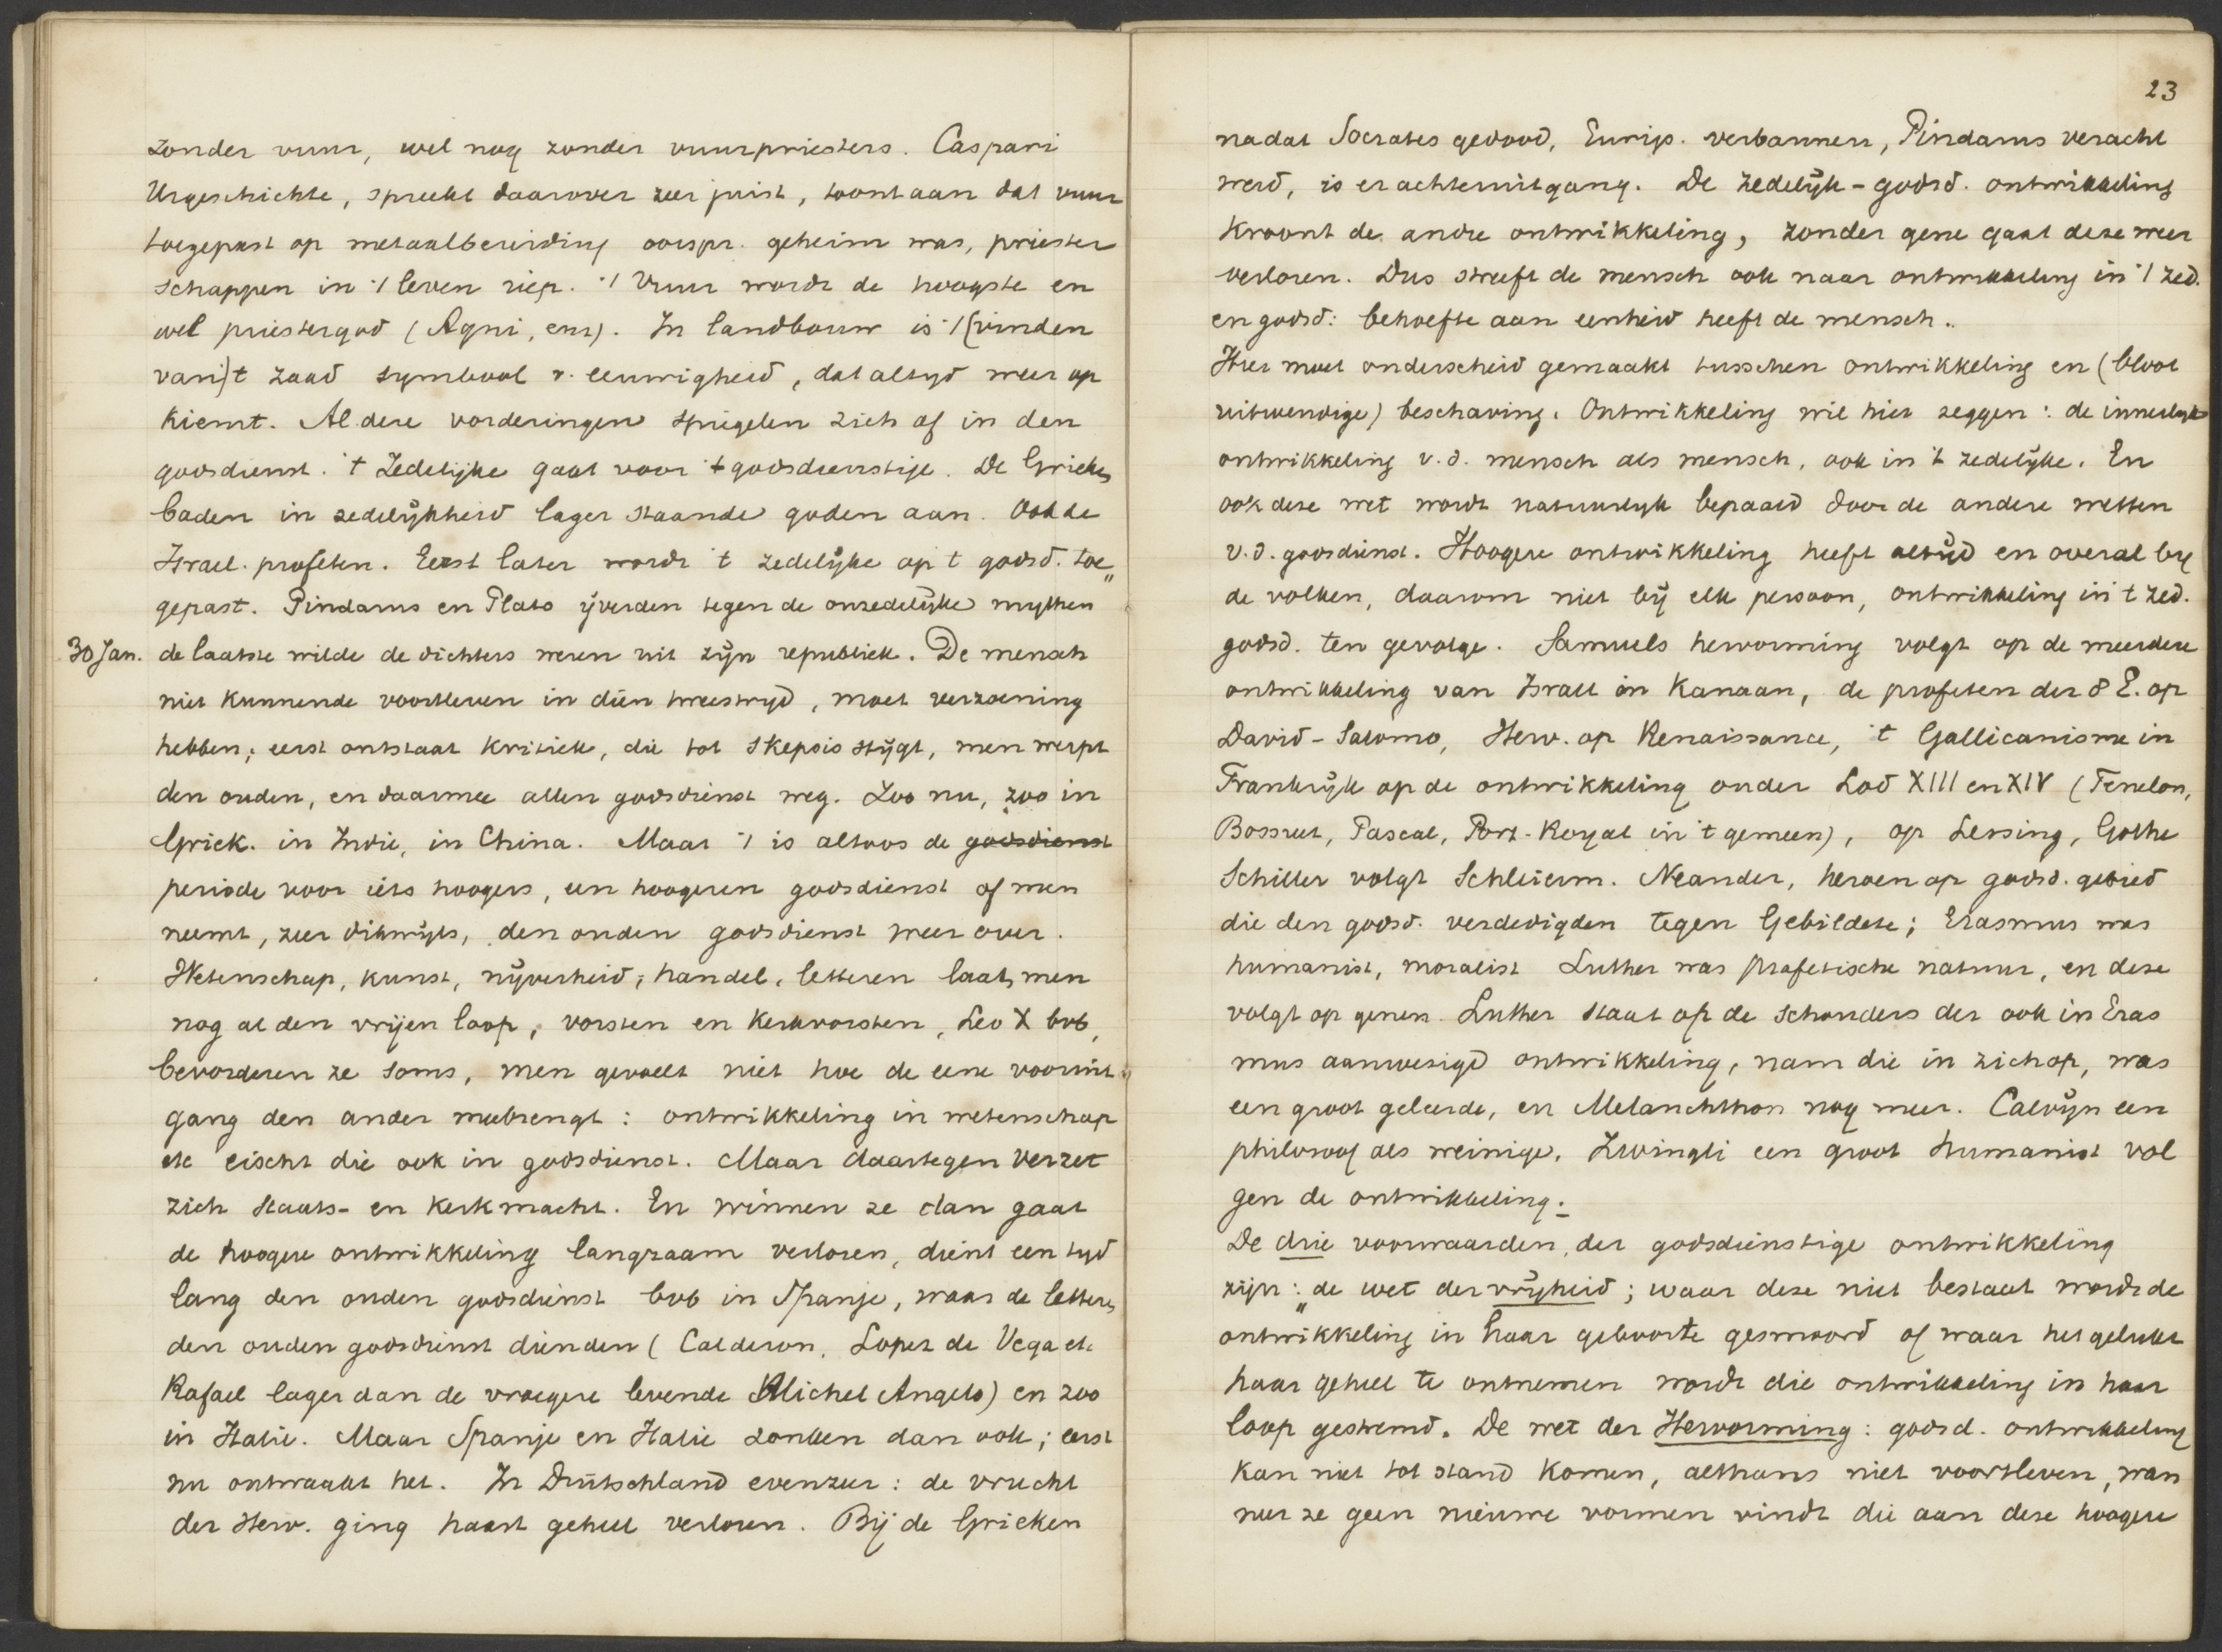 zonder vuur, wel nog zonder vuurpriesters. Caspari
Urgeschichte, spreekt daarover zeer juist, toont aan dat vuur
toegepast op metaalbereiding oorspr. geheim was, priester
schappen in 't leven riep. 't Vuur wordt de hoogste en
wel priestergod (Agni, enz). In landbouw is 't (vinden
van) 't zaad symbool v. eeuwigheid, dat altyd weer op
kiemt. Al deze vorderingen spiegelen zich af in den
godsdienst. 't Zedelijke gaat voor 't godsdienstige. De Grieken
baden in zedelijkheid lager staande goden aan. Ook de
Israel. profeten. Eerst later wordt 't zedelijke op 't godsd. toe„
gepast. Pindarus en Plato ijverden tegen de onzedelijke mythen
30 Jan. de laatste wilde de dichters weren uit zijn republiek. De mensch
niet kunnende voortleven in dien tweestrijd, moet verzoening
hebben; eerst ontstaat kritiek, die tot skepsis stijgt, men werpt
den ouden, en daarmee allen godsdienst weg. Zoo nu, zoo in
Griek. in Indië, in China. Maar 't is altoos de godsdienst
periode voor iets hoogers, een hoogeren godsdienst of men
neemt, zeer dikwijls, den ouden godsdienst weer over.
Wetenschap, kunst, nijverheid, handel, letteren laat men
nog al den vrijen loop, vorsten en kerkvorsten, Leo X bvb,
bevorderen ze soms, men gevoelt niet hoe de eene vooruit„
gang den ander meebrengt: ontwikkeling in wetenschap
etc eischt die ook in godsdienst. Maar daartegen verzet
zich staats- en kerkmacht. En winnen ze dan gaat
de hoogere ontwikkeling langzaam verloren, dient een tyd
lang den ouden godsdienst bvb in Spanje, waar de letteren
den ouden godsdienst dienden (Calderon, Lopez de Vega etc
Rafael lager dan de vroegere levende Michel Angelo) en zoo
in Italië. Maar Spanje en Italië zonken dan ook; eerst
nu ontwaakt het. In Duitschland evenzeer: de vrucht
der Herv. ging haast geheel verloren. Bij de Grieken
23
nadat Socrates gedood, Eurip. verbannen, Pindarus veracht
werd, is er achteruitgang. De zedelijk-godsd. ontwikkeling
kroont de andre ontwikkeling, zonder gene gaat deze weer
verloren. Dus streeft de mensch ook naar ontwikkeling in 't zed.
en godsd: behoefte aan eenheid heeft de mensch.
Hier moet onderscheid gemaakt tusschen ontwikkeling en (bloot
uitwendige) beschaving. Ontwikkeling wil hier zeggen: de innerlyke
ontwikkeling v.d. mensch als mensch, ook in 't zedelijke. En
ook deze wet wordt natuurlyk bepaald door de andere wetten
v.d. godsdienst. Hoogere ontwikkeling heeft altijd en overal by
de volken, daarom niet bij elk persoon, ontwikkeling in 't zed.
godsd. ten gevolge. Samuels hervorming volgt op de meerdere
ontwikkeling van Israel in Kanaan, de profeten der 8 E. op
David-Salomo, Herv. op Renaissance, 't Gallicanisme in
Frankrijk op de ontwikkeling onder Lod XIII en XIV (Fenelon,
Bossuet, Pascal, Port-Royal in 't gemeen), op Lessing, Göthe
Schiller volgt Schleierm. Neander, heroen op godsd. gebied
die den godsd. verdedigden tegen Gebildete; Erasmus was
humanist, moralist Luther was profetische natuur, en deze
volgt op genen. Luther staat op de schouders der ook in Eras
mus aanwezige ontwikkeling, nam die in zich op, was
een groot geleerde, en Melanchthon nog meer. Calvijn een
philosoof als weinige, Zwingli een groot humanist vol
gen de ontwikkeling.
De drie voorwaarden, der godsdienstige ontwikkeling
zijn: „de wet der vrijheid; waar deze niet bestaat wordt de
ontwikkeling in haar geboorte gesmoord of waar het gelukt
haar geheel te ontnemen wordt die ontwikkeling in haar
loop gestremd. De wet der Hervorming: godsd. ontwikkeling
kan niet tot stand komen, althans niet voortleven, wan
neer ze geen nieuwe vormen vindt die aan deze hoogere